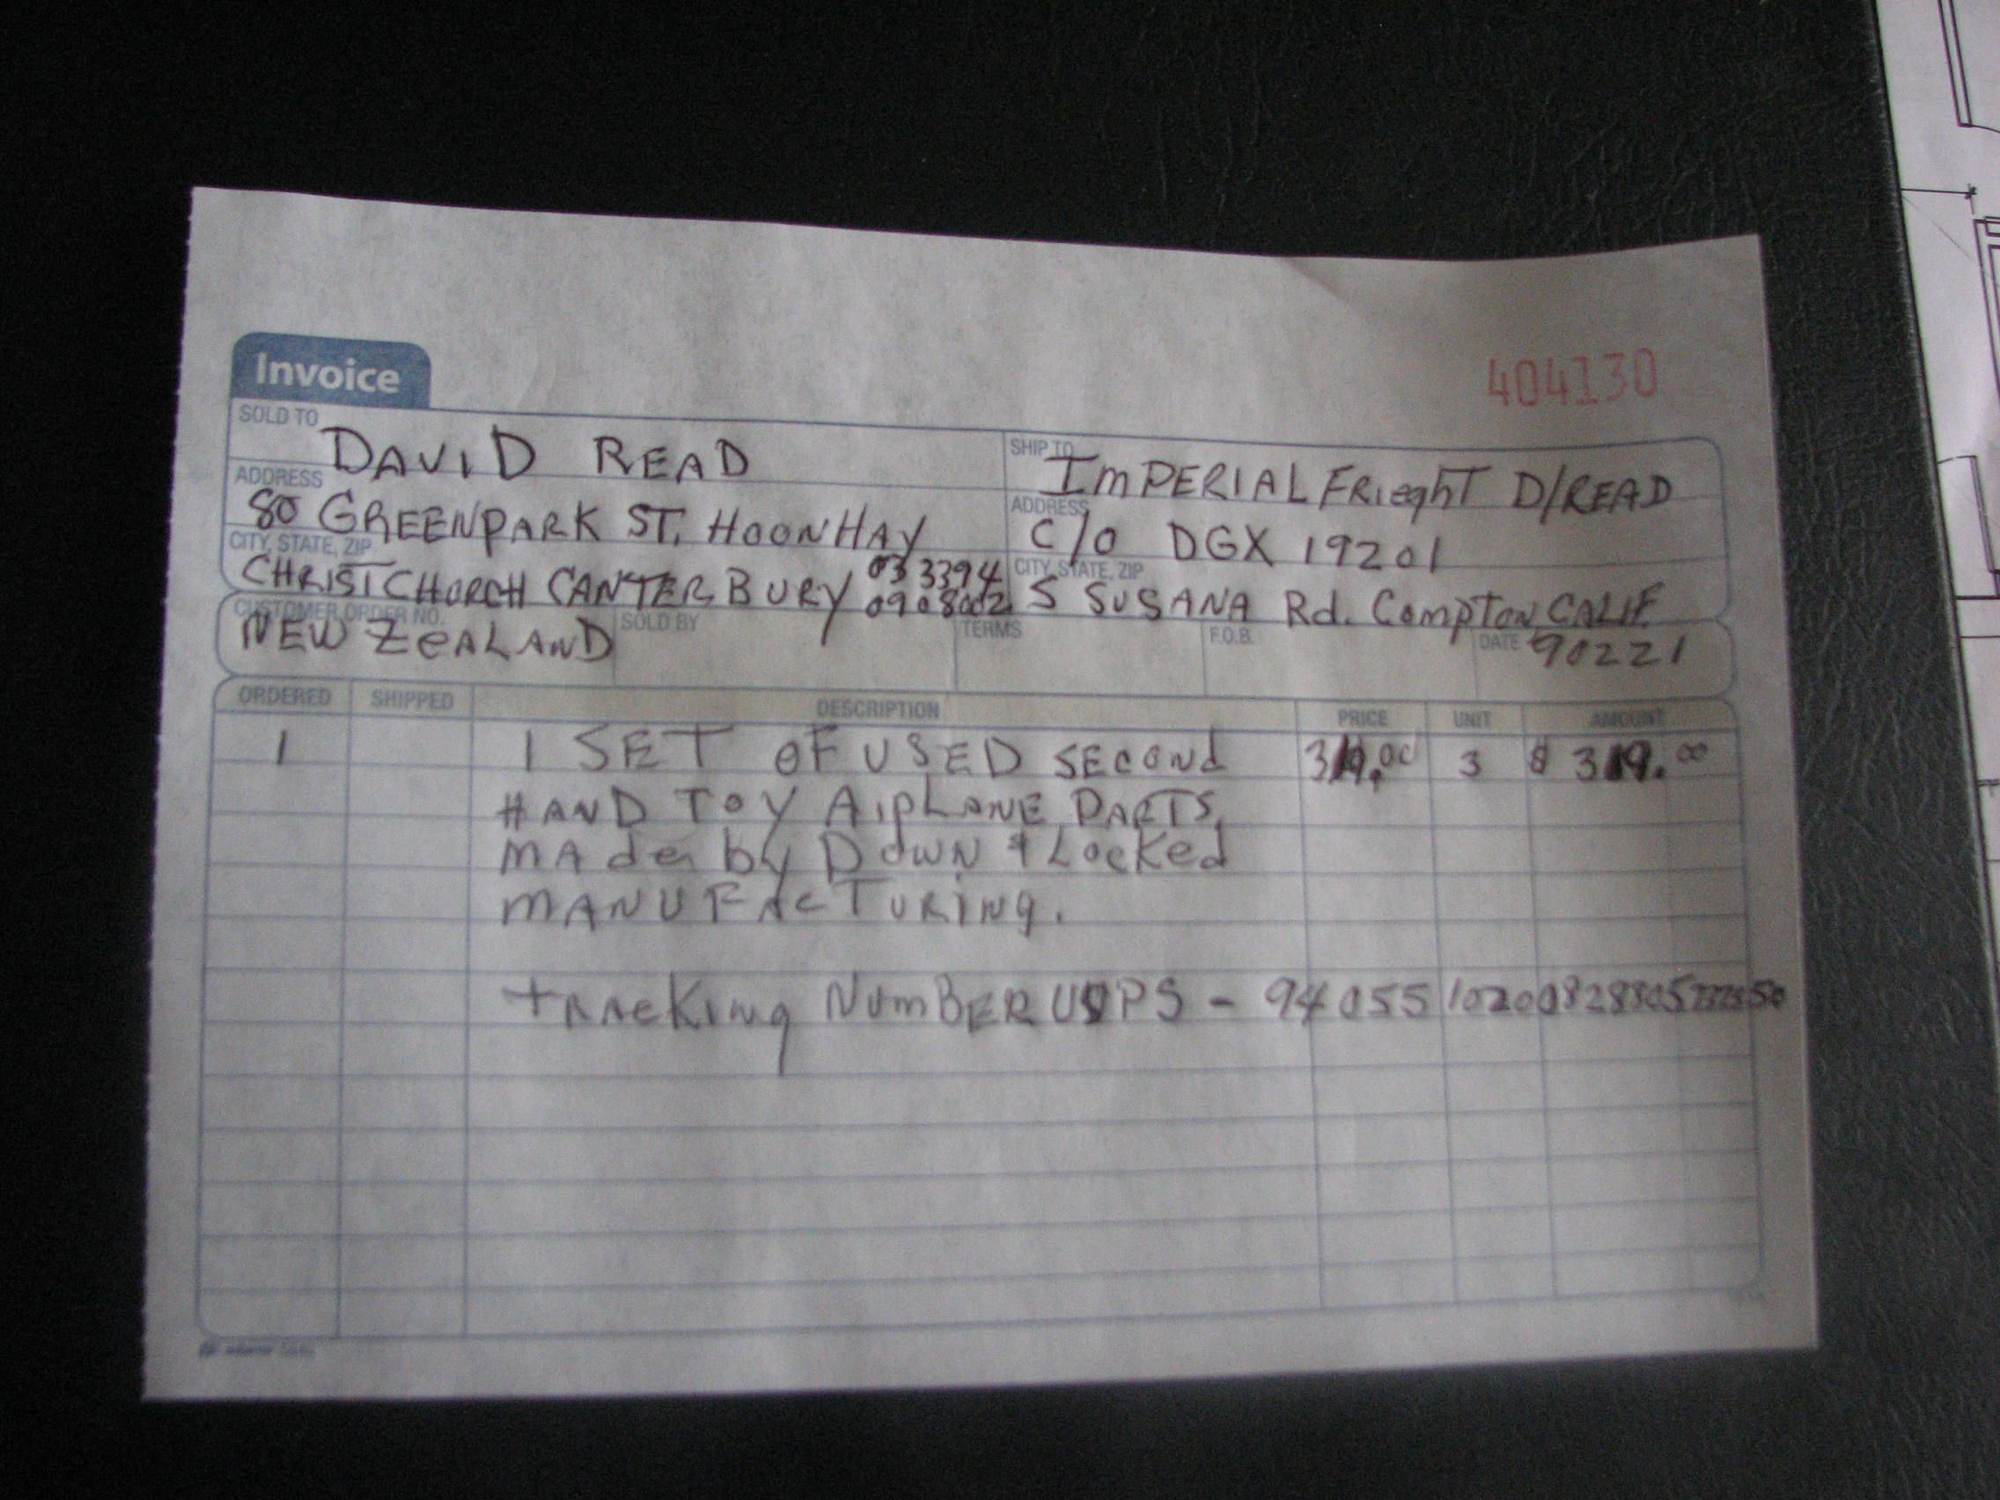 Invoice
404130
SOLD TO
DAVID READ
SHIP TO
IMPERIAL FRieghT D/READ
ADDRESS
80 GREENPARK ST, HOONHAY
ADDRESS
C/O DGX 19201
CITY, STATE, ZIP
CHRISTCHURCH CANTERBURY 03 3394
0908002
CITY, STATE, ZIP
S SUSANA Rd. Compton CALIF
CUSTOMER ORDER NO.
NEW ZeALAND
SOLD BY
TERMS
F.O.B.
DATE
90221
ORDERED SHIPPED DESCRIPTION PRICE UNIT AMOUNT
1 1 SET OF USED SECOND 319.00 3 $ 319.00
HAND TOY AIPLANE PARTS,
MAde by DOWN & LocKed
MANUFACTURING.
TRACKING NUMBER USPS - 94055